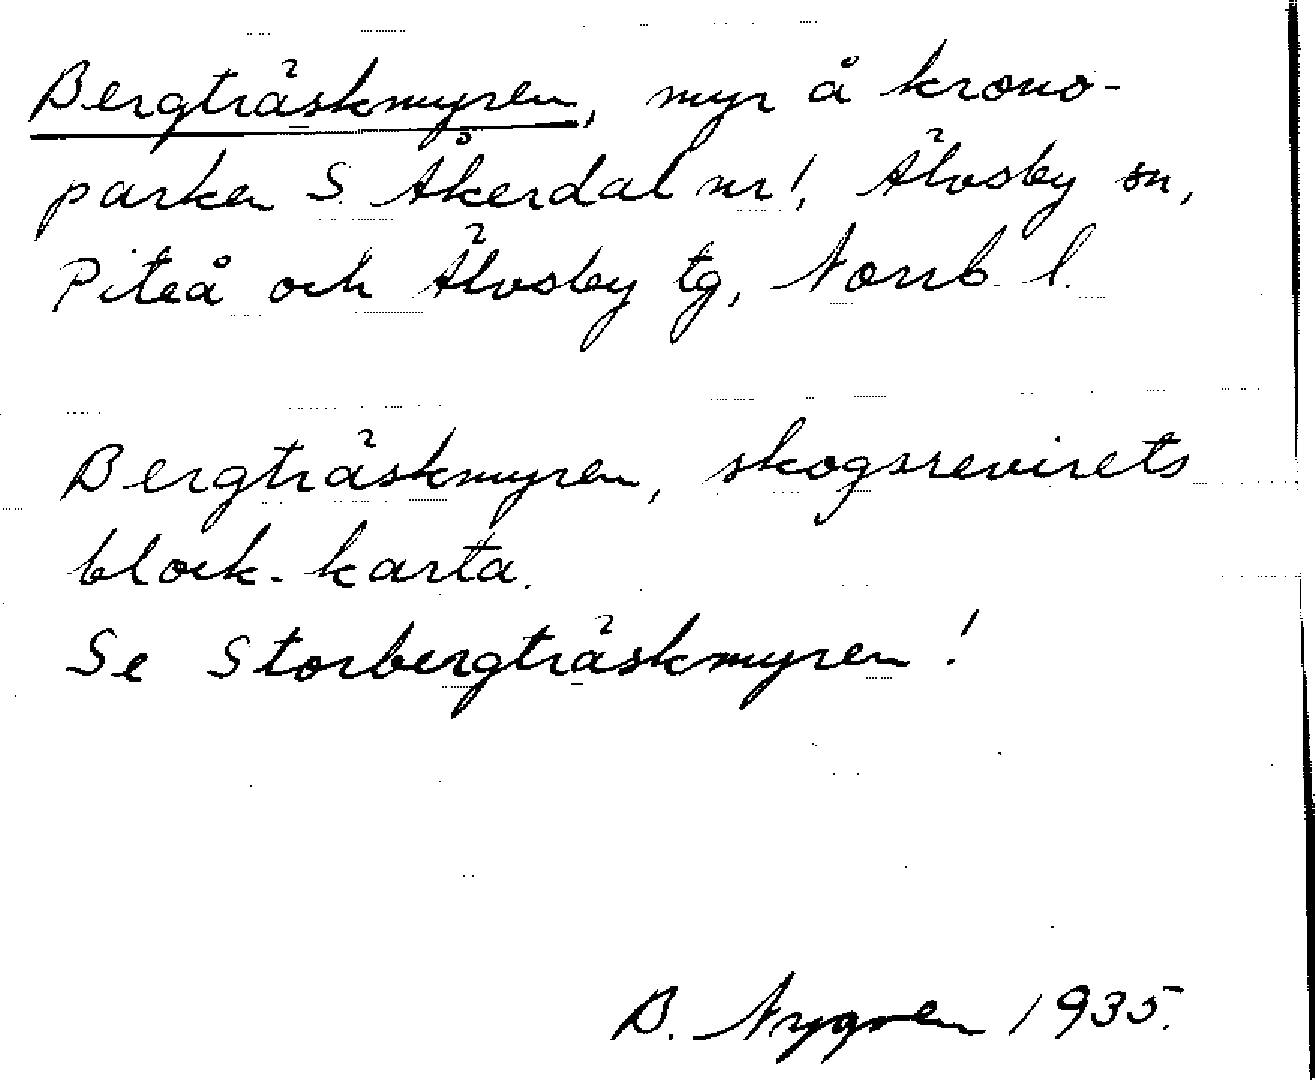 Bergträskmyren, myr å krono-
parken S. Åkerdal nr 1, Älvsby sn,
Piteå och Älvsby tg, Norrb. l.
Bergträskmyren, skogsrevirets
block-karta.
Se Storbergträskmyren!
B. Nygren 1935.